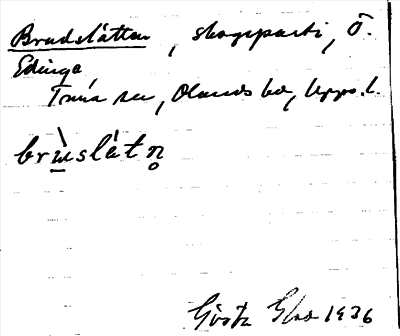 Brudslåtten, skogsparti, Ö.
Edinge,
Tuna sn, Olands hd, Upps. l.
brùslåtn̥
Gösta 1936